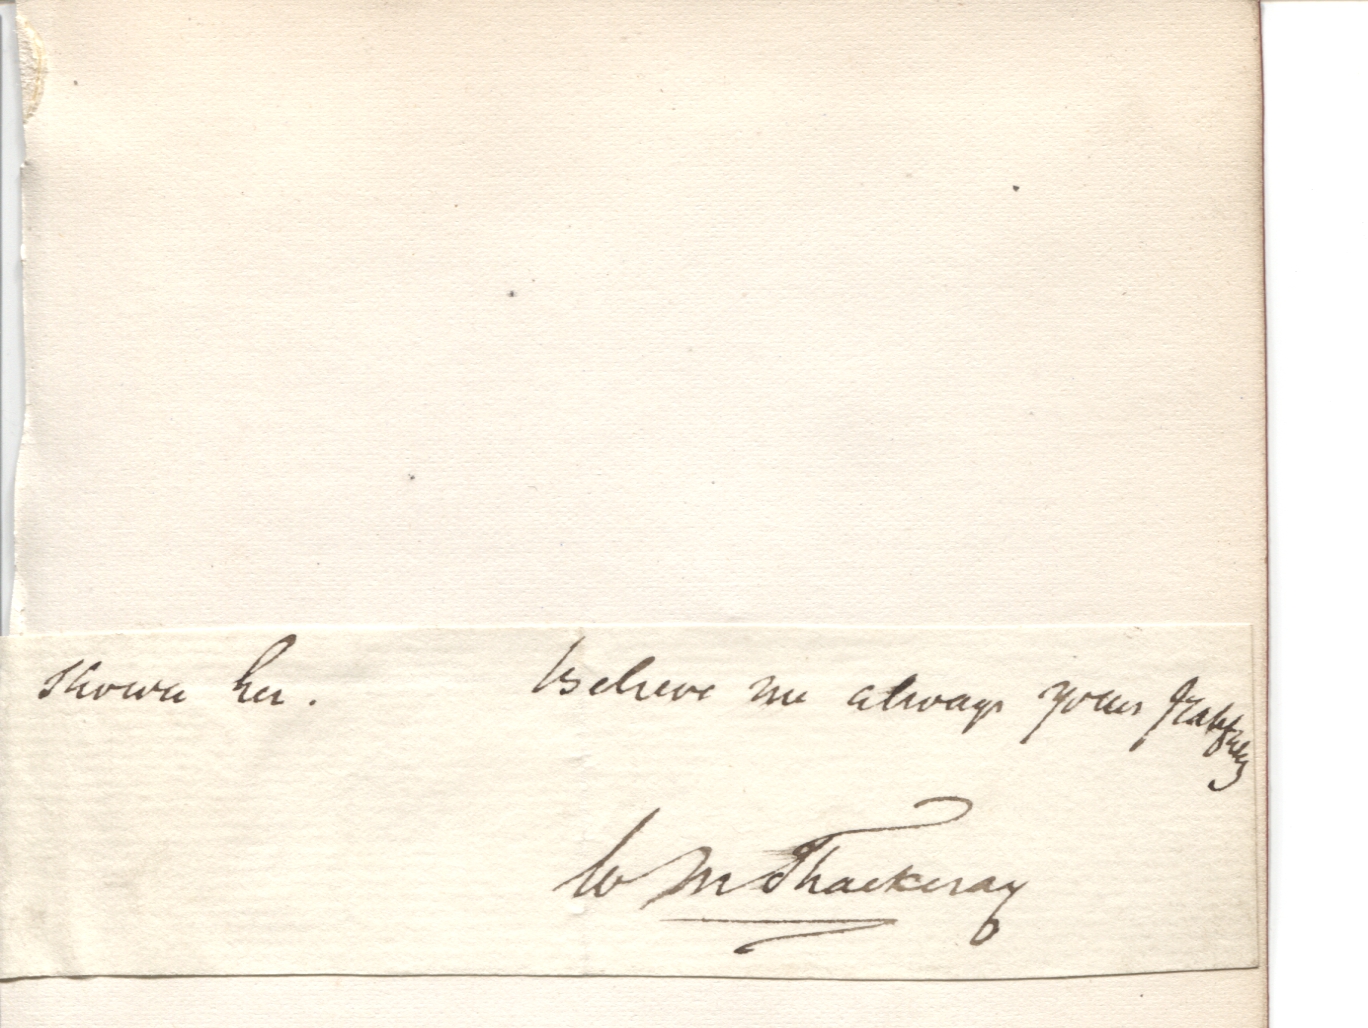 shown her. Believe me always yours
W M Thackeray